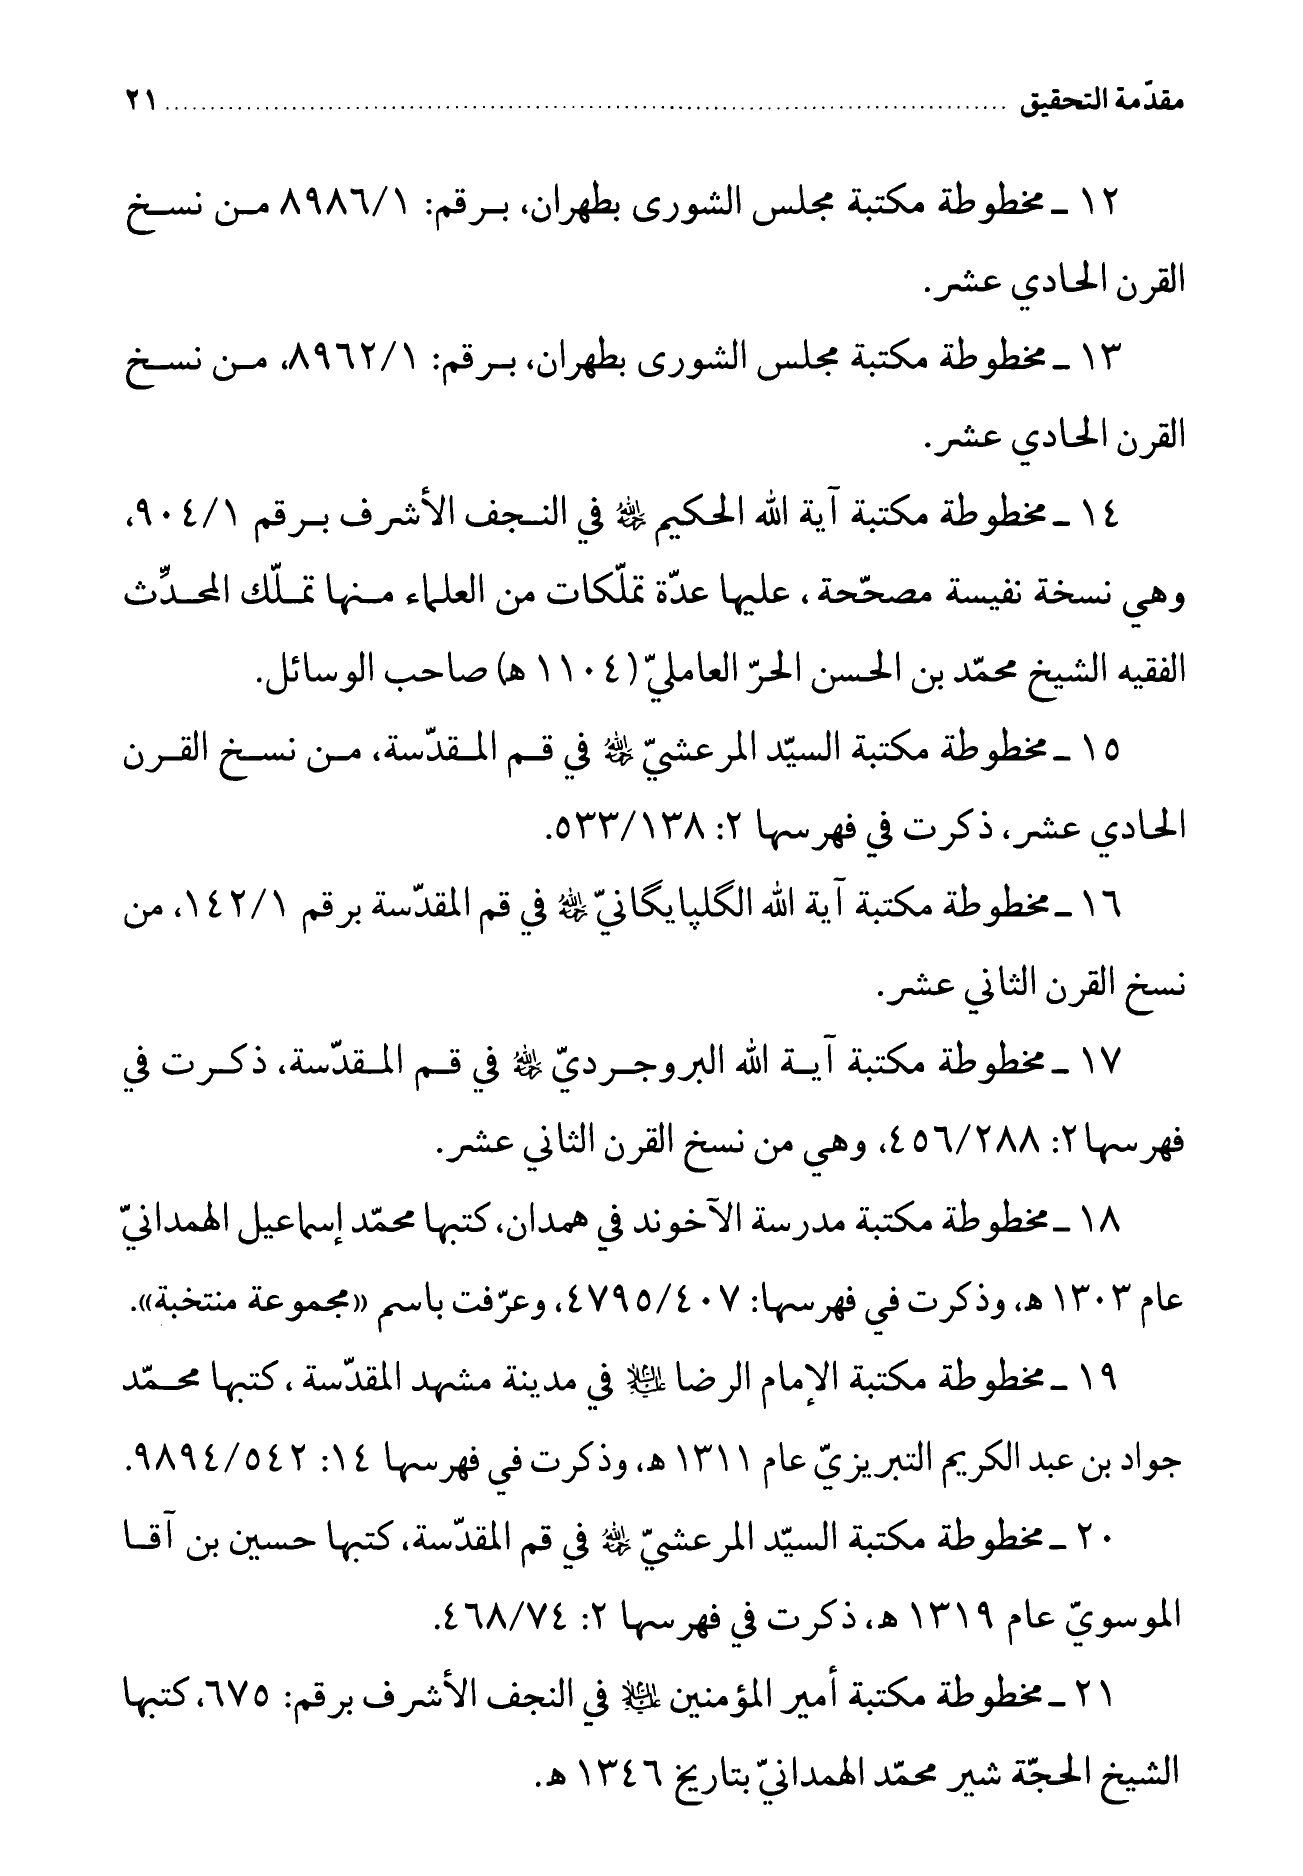 مقدّمة التحقيق ........................................................................ ٢١
١٢ ـ مخطوطة مكتبة مجلس الشورى بطهران، برقم: ٨٩٨٦/١ من نسخ
القرن الحادي عشر.
١٣ ـ مخطوطة مكتبة مجلس الشورى بطهران، برقم: ٨٩٦٢/١، من نسخ
القرن الحادي عشر.
١٤ ـ مخطوطة مكتبة آية الله الحكيم ﵀ في النجف الأشرف برقم ٩٠٤/١،
وهي نسخة نفيسة مصحّحة، عليها عدّة تملّكات من العلماء منها تملّك المحدِّث
الفقيه الشيخ محمّد بن الحسن الحرّ العامليّ (١١٠٤ هـ) صاحب الوسائل.
١٥ ـ مخطوطة مكتبة السيّد المرعشيّ ﵀ في قم المقدّسة، من نسخ القرن
الحادي عشر، ذكرت في فهرسها ٢: ٥٣٣/١٣٨.
١٦ ـ مخطوطة مكتبة آية الله الگلپايگانيّ ﵀ في قم المقدّسة برقم ١٤٢/١، من
نسخ القرن الثاني عشر.
١٧ ـ مخطوطة مكتبة آية الله البروجرديّ ﵀ في قم المقدّسة، ذكرت في
فهرسها ٢: ٤٥٦/٢٨٨، وهي من نسخ القرن الثاني عشر.
١٨ ـ مخطوطة مكتبة مدرسة الآخوند في همدان، كتبها محمّد إسماعيل الهمدانيّ
عام ١٣٠٣ هـ، وذكرت في فهرسها: ٤٧٩٥/٤٠٧، وعرّفت باسم «مجموعة منتخبة».
١٩ ـ مخطوطة مكتبة الإمام الرضا ﵇ في مدينة مشهد المقدّسة، كتبها محمّد
جواد بن عبد الكريم التبريزيّ عام ١٣١١ هـ، وذكرت في فهرسها ١٤: ٩٨٩٤/٥٤٢.
٢٠ ـ مخطوطة مكتبة السيّد المرعشيّ ﵀ في قم المقدّسة، كتبها حسين بن آقا
الموسويّ عام ١٣١٩ هـ، ذكرت في فهرسها ٢: ٤٦٨/٧٤.
٢١ ـ مخطوطة مكتبة أمير المؤمنين ﵇ في النجف الأشرف برقم: ٦٧٥، كتبها
الشيخ الحجّة شير محمّد الهمدانيّ بتاريخ ١٣٤٦ هـ.